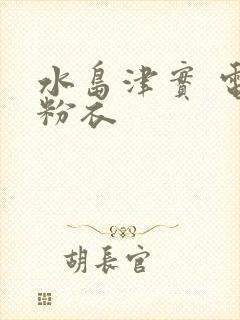 水島津實 電
粉衣
胡長官